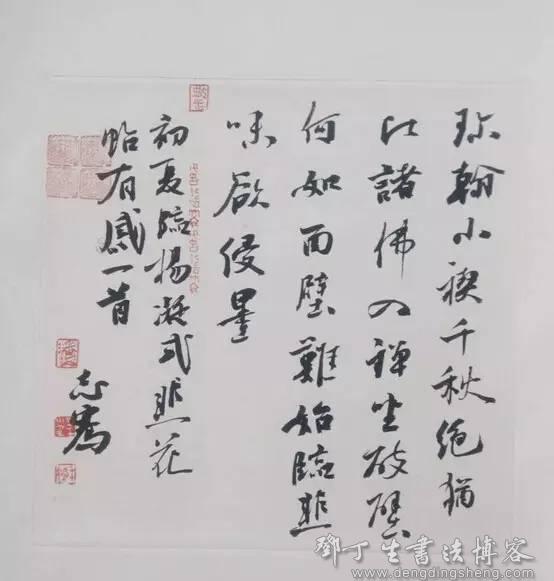 珎翰小禊千秋绝猶
比諸佛入禪坐破壁
何如面壁難始臨韭
味欲侵墨
初夏臨楊凝式韭花
帖有感一首
志寫
鄧丁生書法博客
www.dengdingsheng.com